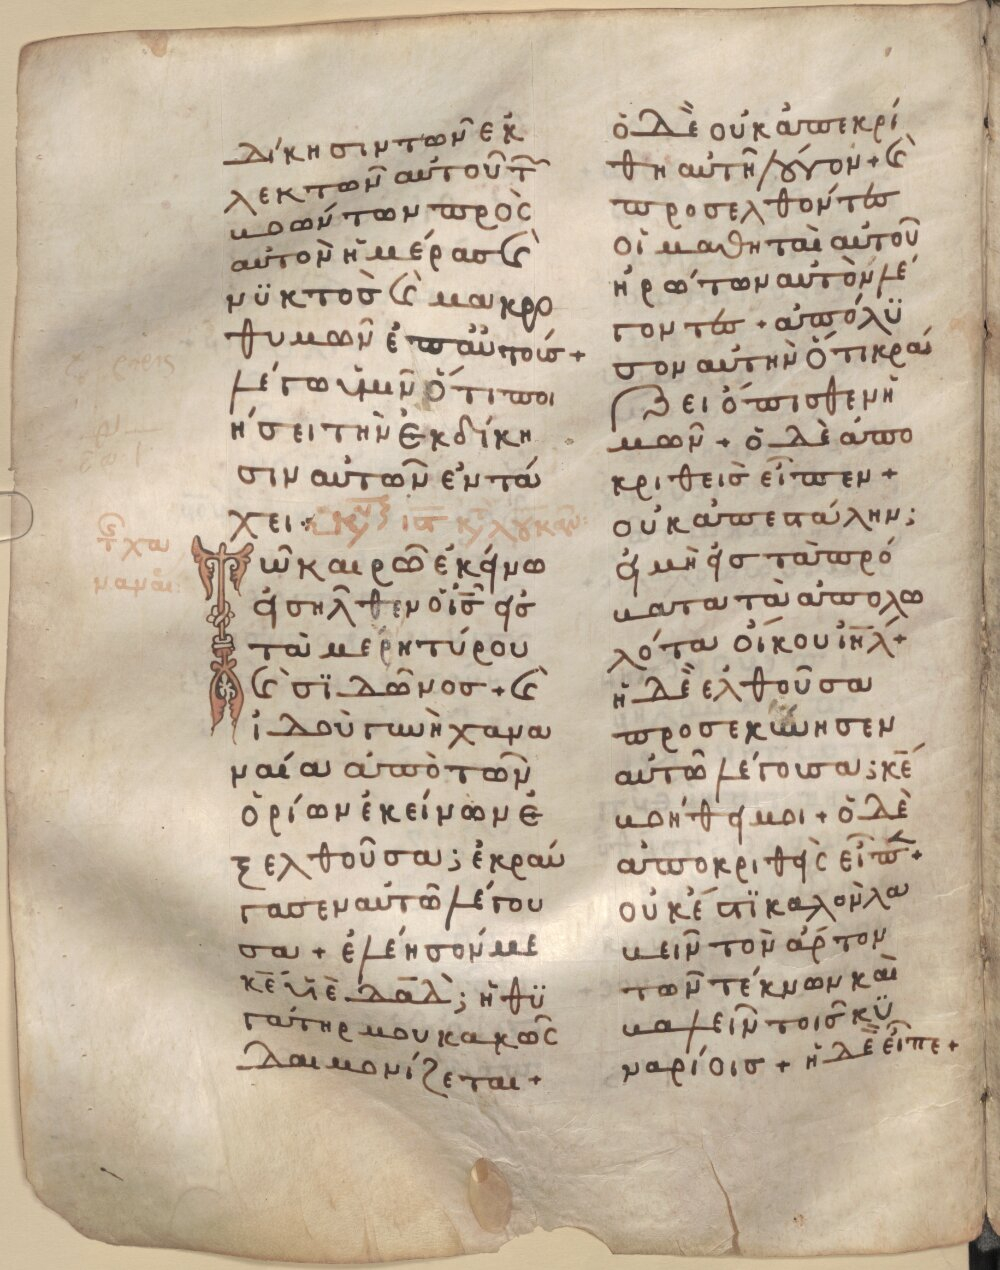 δίκησιν τῶν ἐκ
λεκτῶν αὐτοῦ τῶν
βοών των πρὸς
αὐτὸν ἡμέρας κ(αὶ)
νϋκτὸς κ(αὶ) μακρο
θυμῶν ἐπ αὐτοίς +
λέγω ὑμῖν ὅτι ποι
ήσει τὴν ἐκδίκη
σιν αὐτῶν ἐν τά
χει:
Τῶ καιρῶ ἐκείνω
εἰσῆλθεν ὁ ι̅ς̅ εἰς
τὰ μέρη τύρου
κ(αὶ) σϊδῶνος + κ(αὶ)
ἰδοὺ γυνὴ χανα
ναία ἀπὸ τῶν
ὁρίων ἐκείνων ἐ
ξελθοῦσα; ἐκραύ
γασεν αὐτῶ λέγου
σα + ἐλέησόν με
κ̅ε̅ ϋ̅ε̅ δα̅δ̅; ἡ θϋ
γάτηρ μου κακῶς
δαιμονίζεται +
ὁ δὲ οὐκ ἀπεκρί
θη αὐτῆ λόγον + κ(αὶ)
προσελθόντες
οἱ μαθηταὶ αὐτοῦ
ἠρώτων αὐτὸν λέ
γοντες + ἀπόλϋ
σον αὐτὴν ὅτι κρά
ζει όπισθεν ἡ
μῶν + ὁ δὲ ἀπο
κριθεὶς εἶπεν +
οὐκ ἀπεστάλην;
εἰ μὴ εἰς τὰ πρό
βατα τὰ ἀπολω
λότα οἴκου ι̅η̅λ̅ +
ἡ δὲ ἐλθοῦσα
προσεκύνησεν
αὐτῶ λέγουσα; κ̅ε̅
βοήθει μοι + ὁ δὲ
ἀποκριθεὶς εἶπεν +
οὐκ έστϊ καλὸν λα
βεῖν τὸν ἄρτον
τῶν τέκνων καὶ
βαλεῖν τοις κϋ
ναρίοις + ἡ δὲ εἶπε +